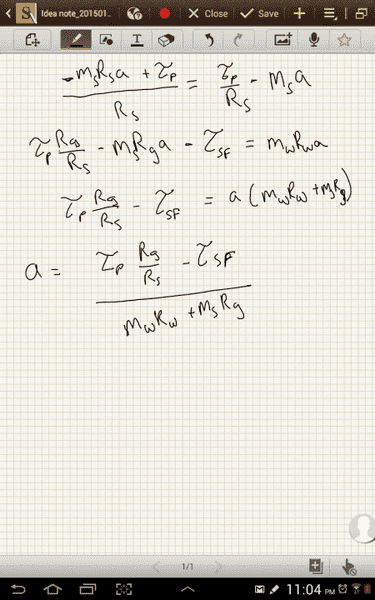 Idea note_201501... Close Save
(-m_s R_s a + τ_p) / R_s = τ_p / R_s - m_s a
τ_p R_g / R_s - m_s R_g a - τ_SF = m_w R_w a
τ_p R_g / R_s - τ_SF = a (m_w R_w + m_s R_g)
a = (τ_p R_g / R_s - τ_SF) / (m_w R_w + m_s R_g)
1/1
11:04 PM